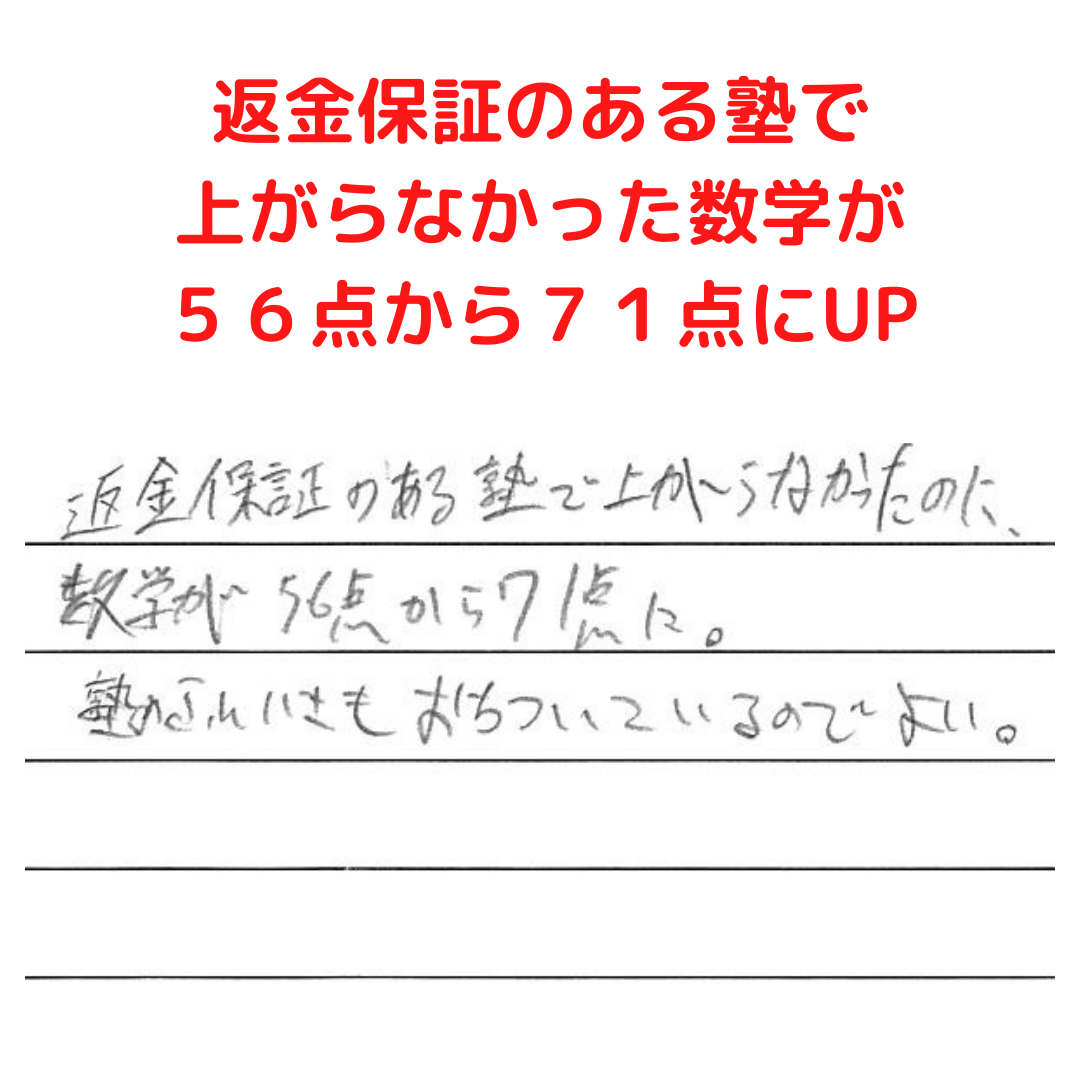 返金保証のある塾で
上がらなかった数学が
５６点から７１点にUP
返金保証のある塾で上がらなかったのに、
数学が56点から71点に。
塾のふんいきもおちついているのでよい。